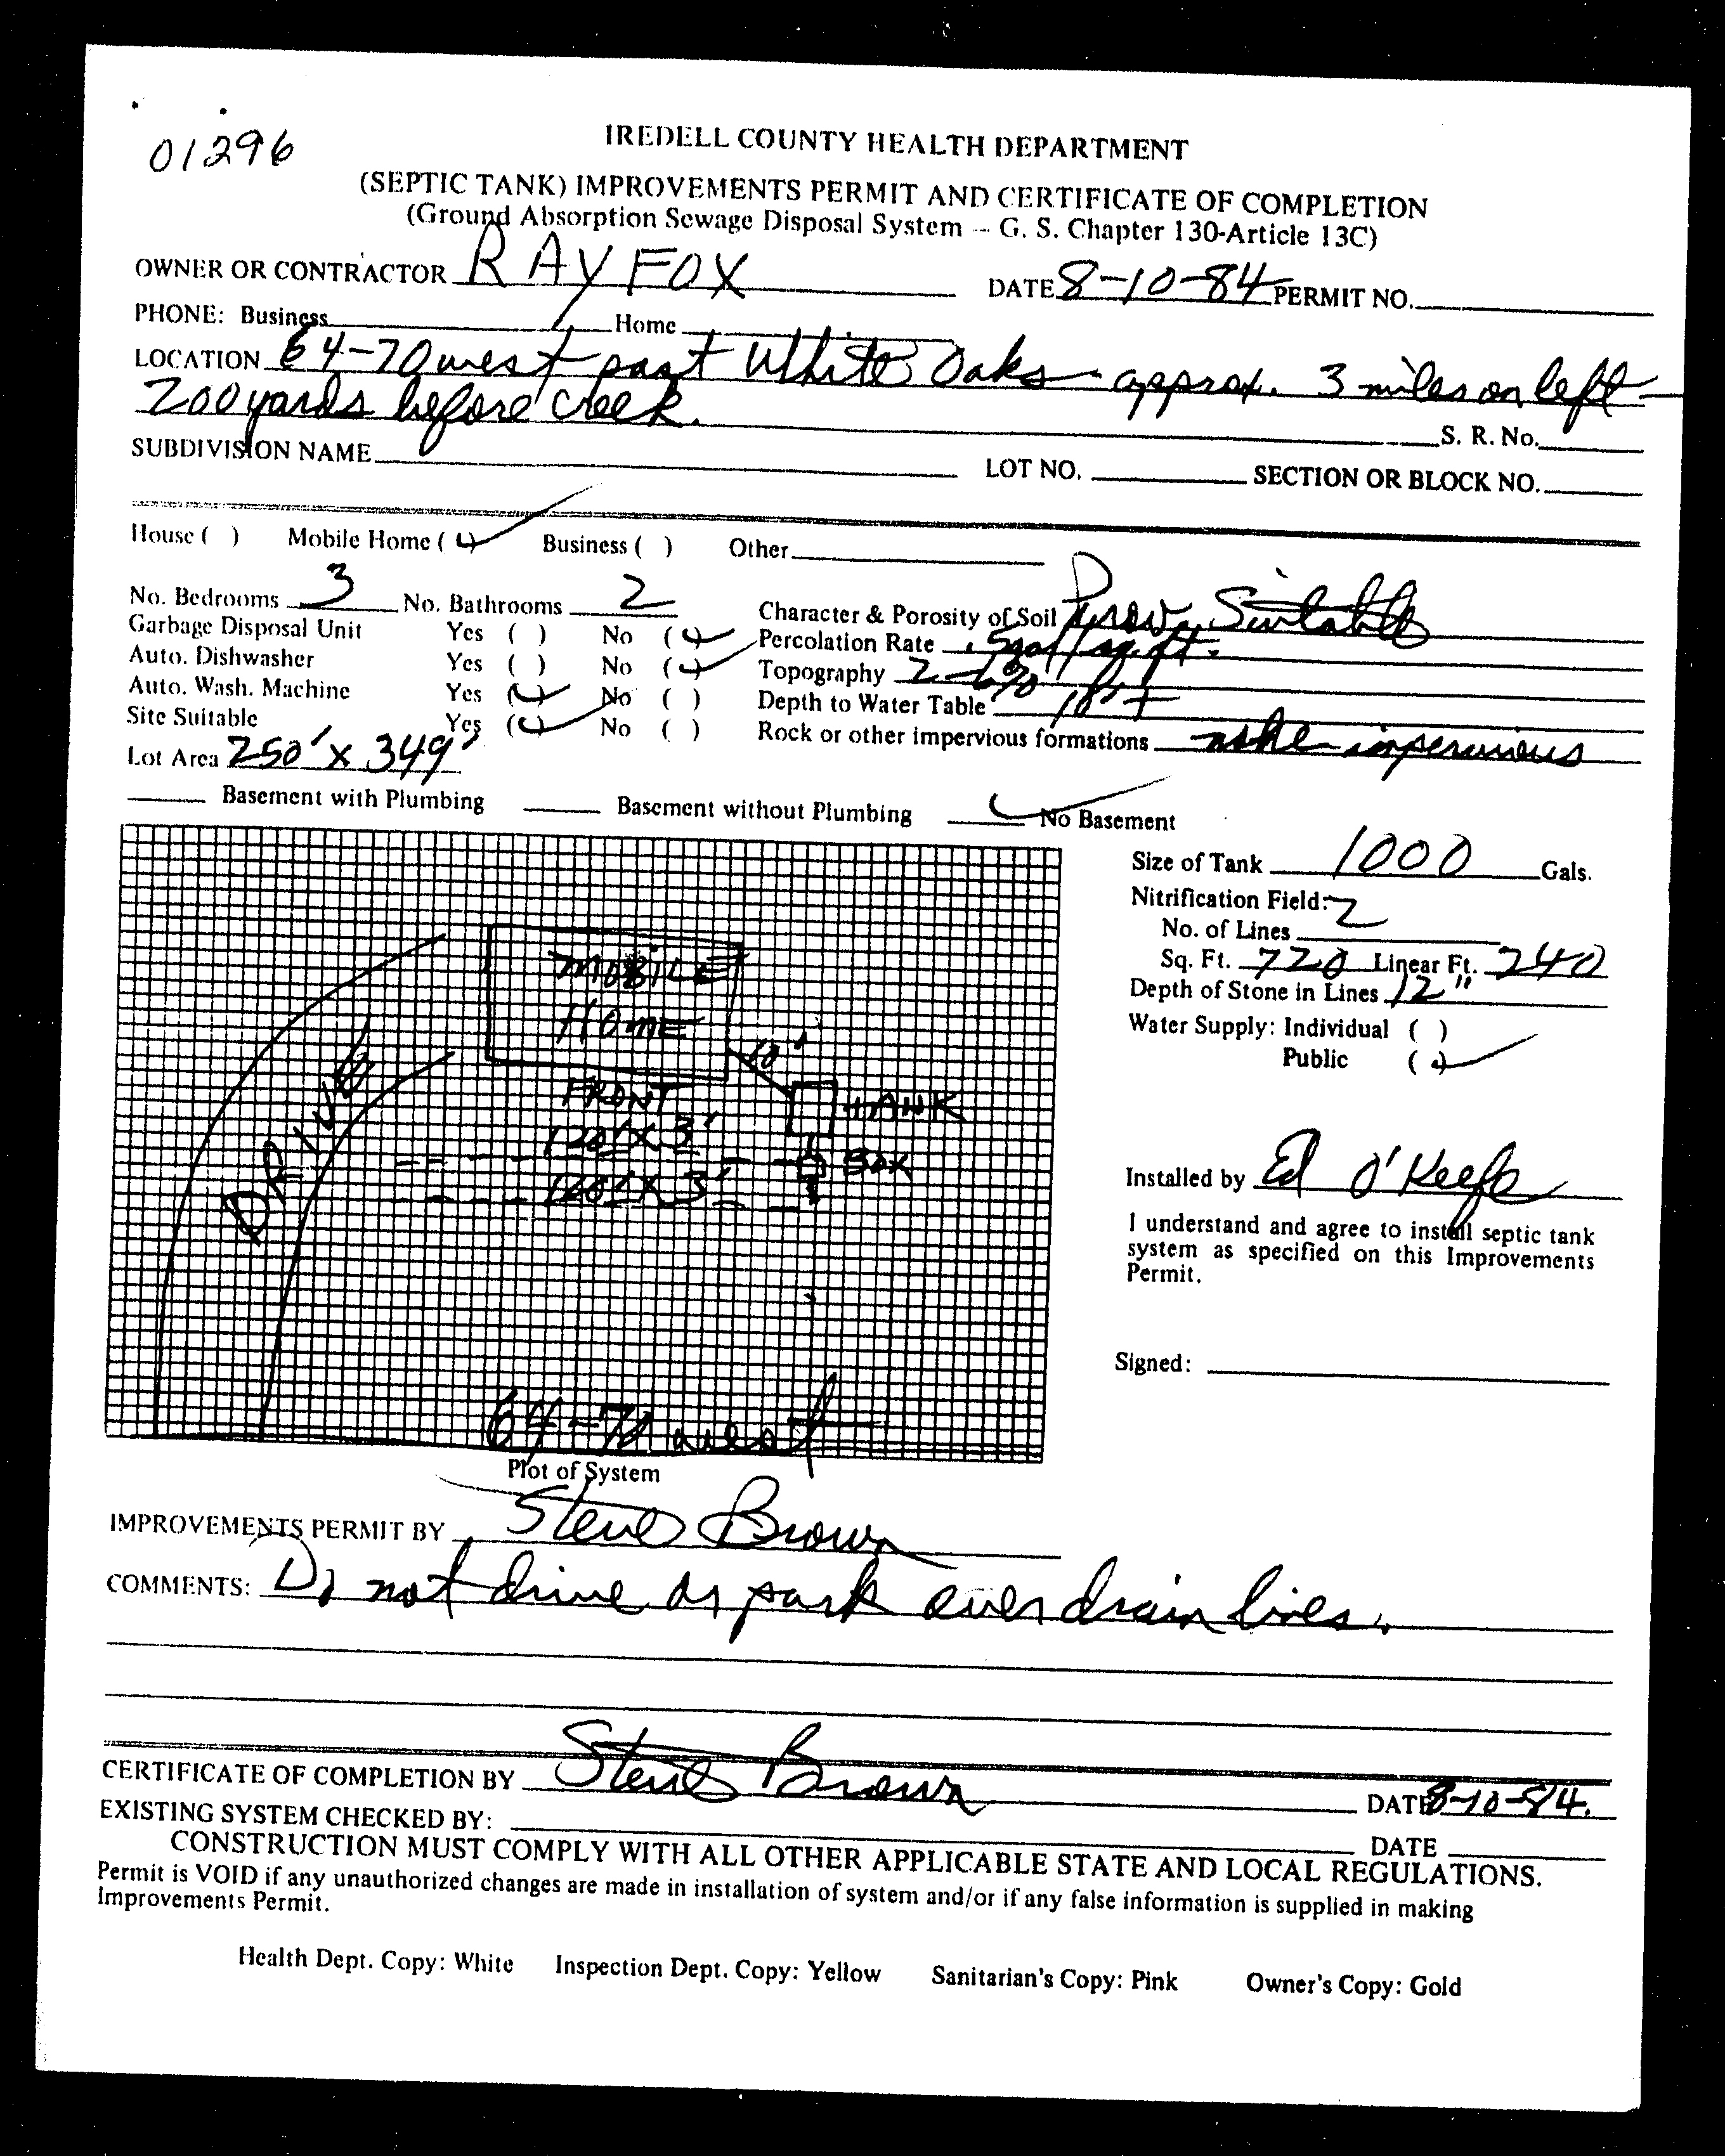 01296
IREDELL COUNTY HEALTH DEPARTMENT
(SEPTIC TANK) IMPROVEMENTS PERMIT AND CERTIFICATE OF COMPLETION
(Ground Absorption Sewage Disposal System -- G. S. Chapter 130-Article 13C)
OWNER OR CONTRACTOR RAY FOX DATE 8-10-84 PERMIT NO.
PHONE: Business Home
LOCATION 64-70 west past White Oaks - approx. 3 miles on left -
200 yards before creek. S. R. No.
SUBDIVISION NAME LOT NO. SECTION OR BLOCK NO.
House ( ) Mobile Home (✓) Business ( ) Other
No. Bedrooms 3 No. Bathrooms 2 Character & Porosity of Soil Prov. Suitable
Garbage Disposal Unit Yes ( ) No (✓) Percolation Rate .5gal/sq.ft.
Auto. Dishwasher Yes ( ) No (✓) Topography 2-6%
Auto. Wash. Machine Yes (✓) No ( ) Depth to Water Table 10'+
Site Suitable Yes (✓) No ( ) Rock or other impervious formations impervious
Lot Area 250' x 349'
Basement with Plumbing Basement without Plumbing ✓ No Basement
Size of Tank 1000 Gals.
Nitrification Field:
No. of Lines 2
Sq. Ft. 720 Linear Ft. 240
Depth of Stone in Lines 12"
Water Supply: Individual ( )
Public (✓)
MOBILE
HOME
10'
FRONT
TANK
120' X 3'
BOX
120' X 3'
DRIVE
64-70 west
Plot of System
Installed by Ed O'Keefe
I understand and agree to install septic tank
system as specified on this Improvements
Permit.
Signed:
IMPROVEMENTS PERMIT BY Steve Brown
COMMENTS: Do not drive or park over drain lines.
CERTIFICATE OF COMPLETION BY Steve Brown DATE 8-10-84.
EXISTING SYSTEM CHECKED BY: DATE
CONSTRUCTION MUST COMPLY WITH ALL OTHER APPLICABLE STATE AND LOCAL REGULATIONS.
Permit is VOID if any unauthorized changes are made in installation of system and/or if any false information is supplied in making
Improvements Permit.
Health Dept. Copy: White Inspection Dept. Copy: Yellow Sanitarian's Copy: Pink Owner's Copy: Gold